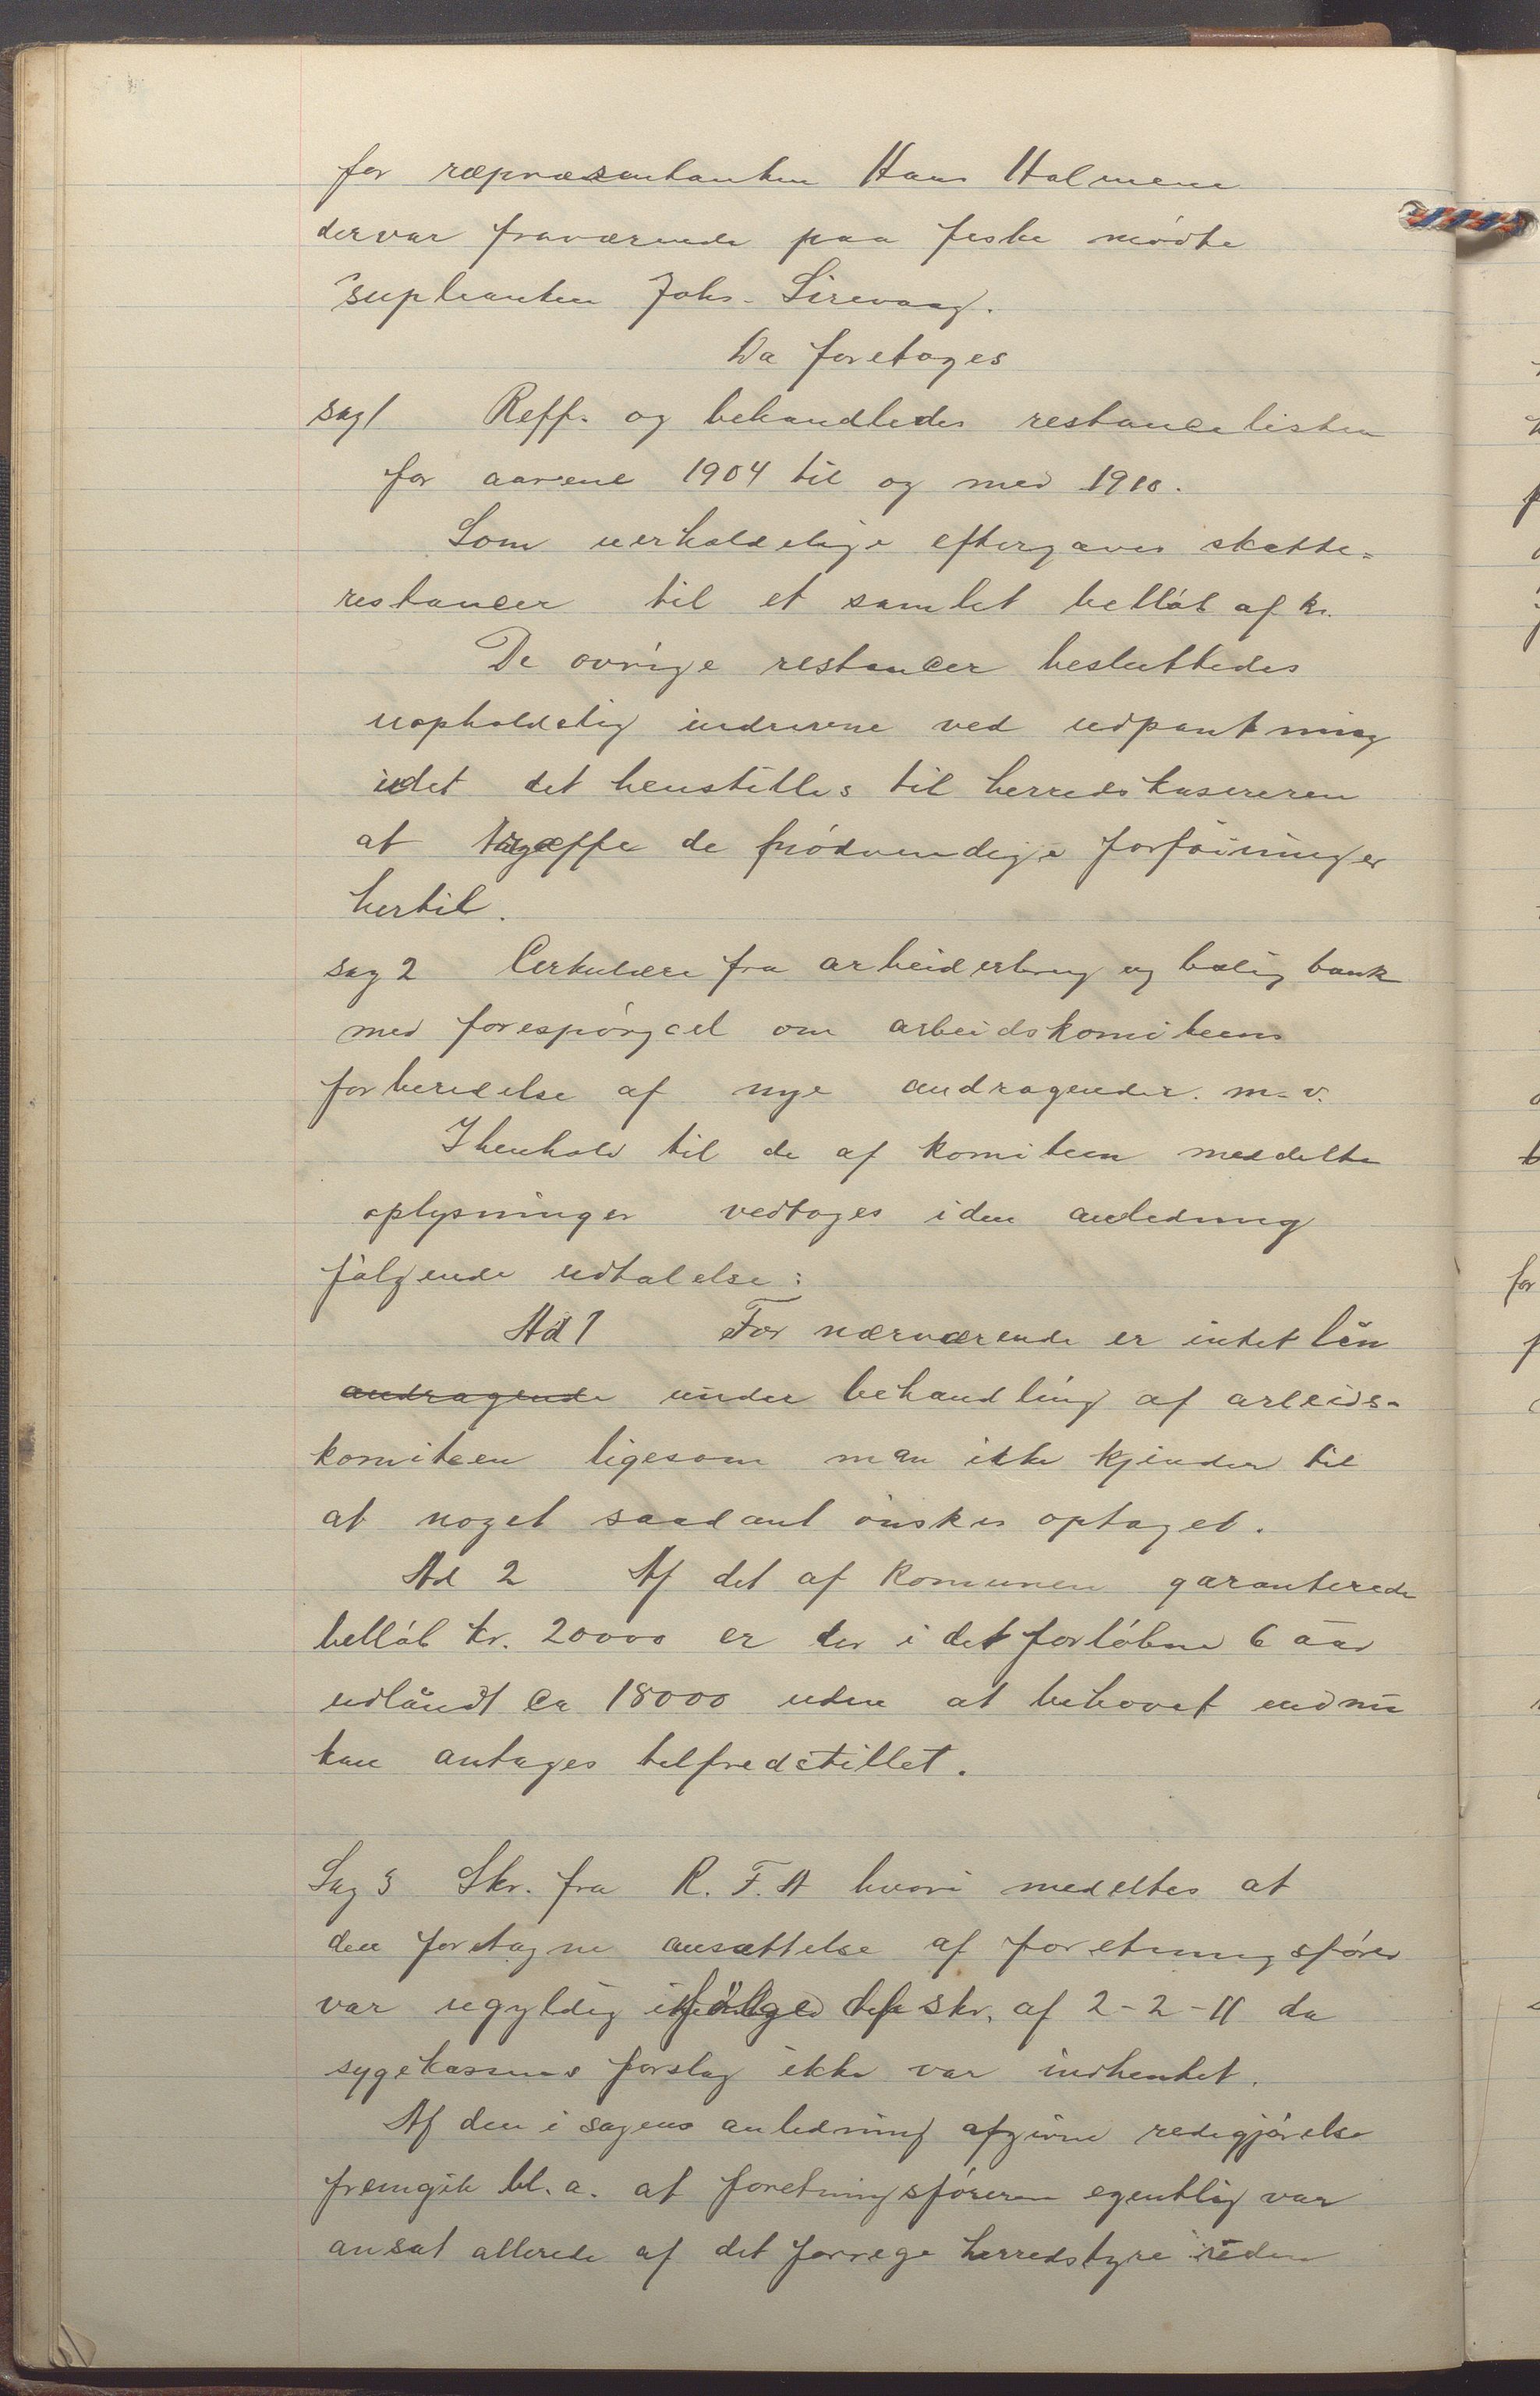 for repræsentanten Hans Holmene
der var fraværende paa feske mødte
suplianten Johs. Sirevaag.
Da foretoges
sag 1 Reff. og behandledes restancelisten
for aarene 1904 til og med 1910.
Som uerholdelige eftergaves skatte=
restancer til et samlet belløb af kr.
De øvrige restancer besluttedes
uopholdelig inddrevne ved udpantning
idet det henstilles til herredskasereren
at træffe de nødvendige forføininger
hertil.
sag 2 Cerkulære fra arbeiderbrug og bolig bank
med forespørgsel om arbeidskomiteens
forberedelse af nye andragender m. v.
I henhold til de af komiteen meddelte
oplysninger vedtoges i den anledning
følgende udtalelse:
Ad 1 For nærværende er intet lån
andragende under behandling af arbeids-
komiteen ligesom man ikke kjender til
at noget saadant ønskes optaget.
Ad 2 Af det af komunen garanterede
belløb kr. 20000 er der i det forløbne 6 aar
udlåndt ca 18000 uden at behovet endnu
kan antages tilfredstillet.
Sag 3 Skr. fra R. F. A hvori medeltes at
den foretagne ansættelse af foretningsfører
var ugyldig ifølge skr. af 2-2-11 da
sygekassens forslag ikke var indhentet.
Af den i sagens anledning afgivne redegjørelse
fremgik bl. a. at foretningsføreren egentlig var
ansat allerede af det forrege herredstyre i